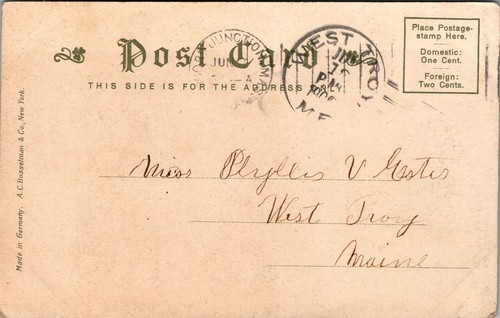 Post Card
THIS SIDE IS FOR THE ADDRESS
Place Postage-
stamp Here.
Domestic:
One Cent.
Foreign:
Two Cents.
JUNCTION
JUN
A
WEST TROY,
PM
ME
Miss Phyllis V Estes
West Troy
Maine
Made in Germany. A.C. Bosselman & Co., New York.